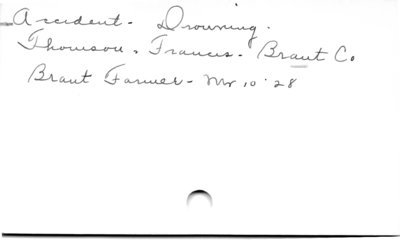 Accident - Drowning.
Thomson, Francis - Brant Co.
Brant Farmer - Mr 10 '28